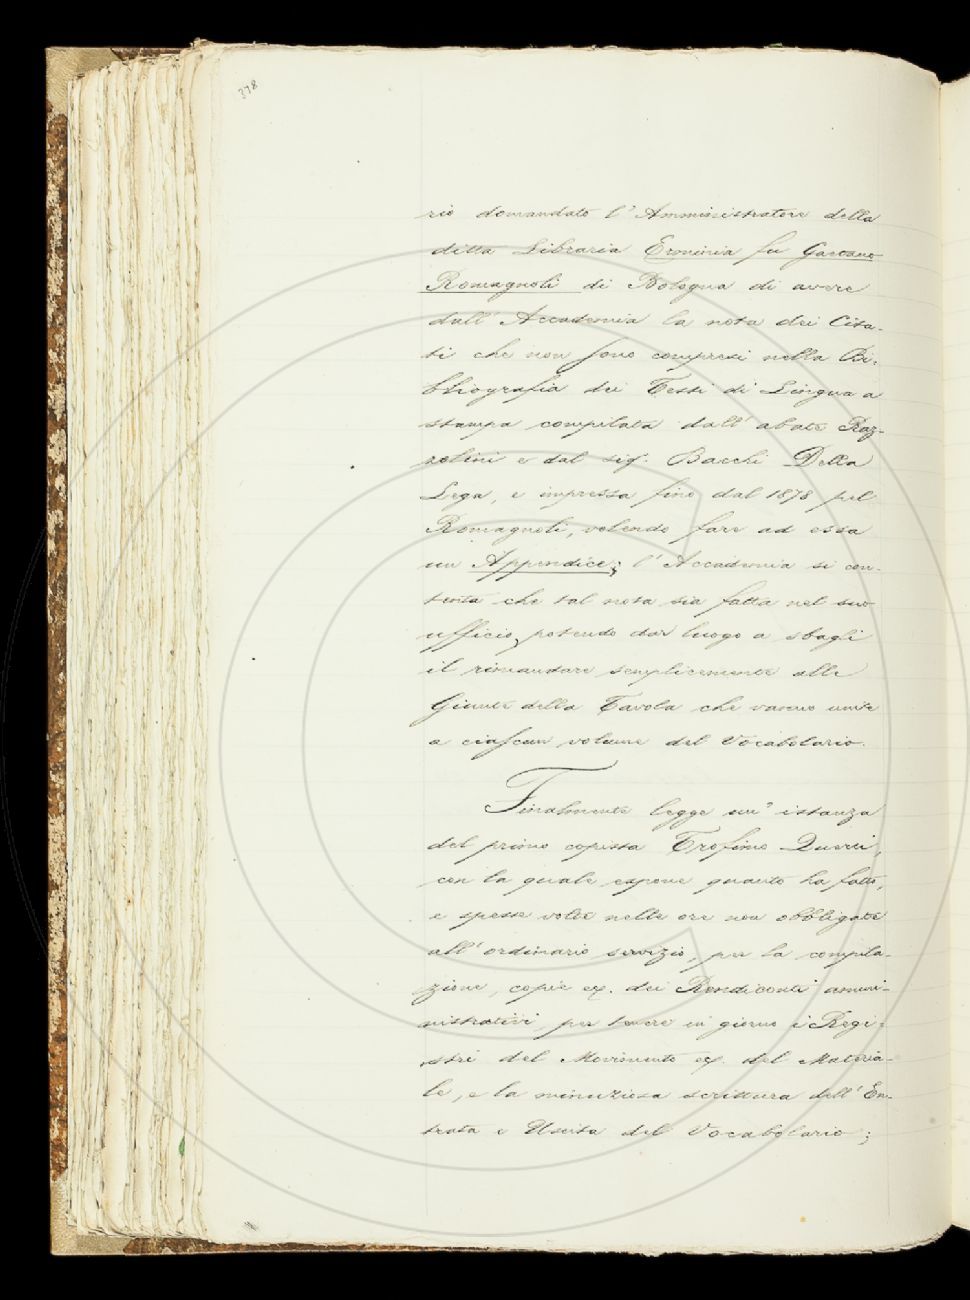 378
rio domandato l'Amministratore della
ditta Libraria Erminia fu Gaetano
Romagnoli di Bologna di avere
dall'Accademia la nota dei Cita-
ti che non sono compresi nella Bi-
bliografia dei Testi di Lingua a
stampa compilata dall'abate Raz-
zolini e dal sig. Bacchi Della
Lega, e impressa fino dal 1878 pel
Romagnoli, volendo fare ad essa
un Appendice; l'Accademia si con-
tenta che tal nota sia fatta nel suo
ufficio, potendo dar luogo a sbagli
il rimandare semplicemente alle
Giunte della Tavola che vanno unite
a ciascun volume del Vocabolario.
Finalmente legge un'istanza
del primo copista Trofimo Querci,
con la quale espone quanto ha fatto,
e spesse volte nelle ore non obbligate
all'ordinario servizio, per la compila-
zione, copie ec. dei Rendiconti ammi-
nistrativi per tenere in giorno i Regi-
stri del Movimento ec. del Materia-
le, e la minuziosa scrittura dell'En-
trata e Uscita del Vocabolario;